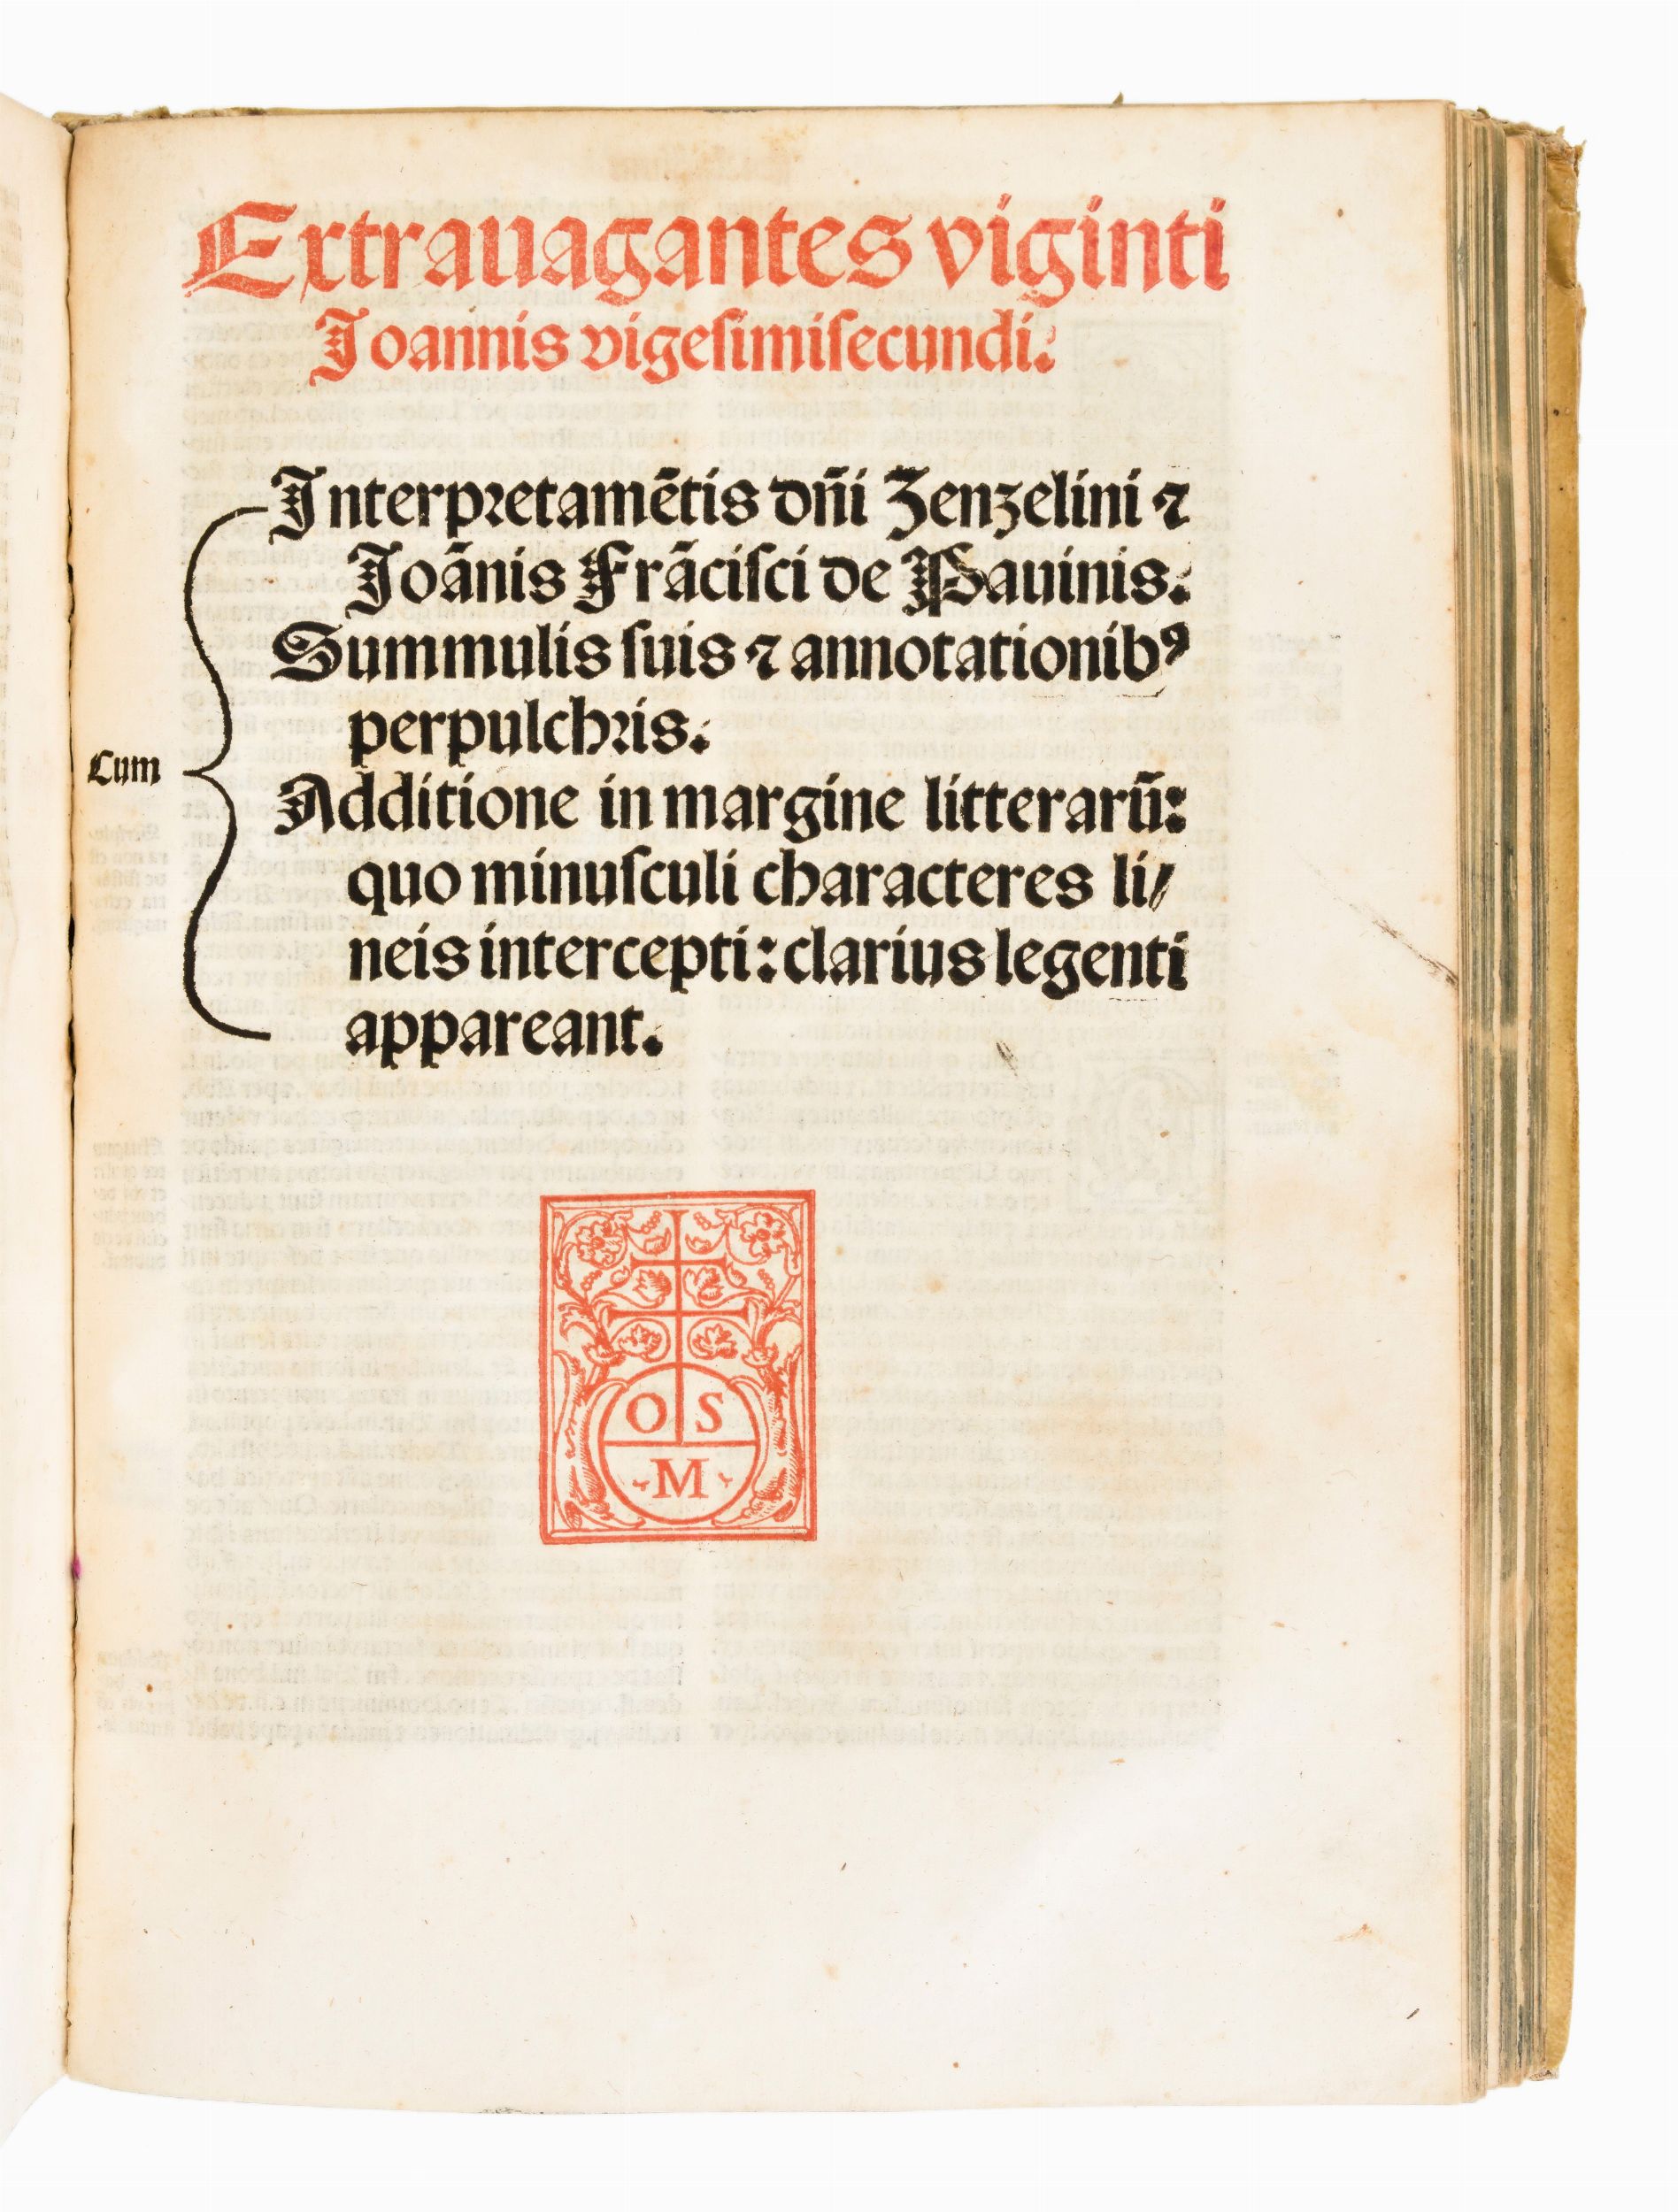 Extrauagantes viginti
Joannis vigeſimiſecundi.
Interpretamētis dñi Zenzelini ⁊
Joānis Frāciſci de Pauinis.
Summulis ſuis ⁊ annotationibꝰ
perpulchꝛis.
Cum
Additione in margine litterarū:
quo minuſculi characteres li⸗
neis intercepti: clarius legenti
appareant.
O S
M